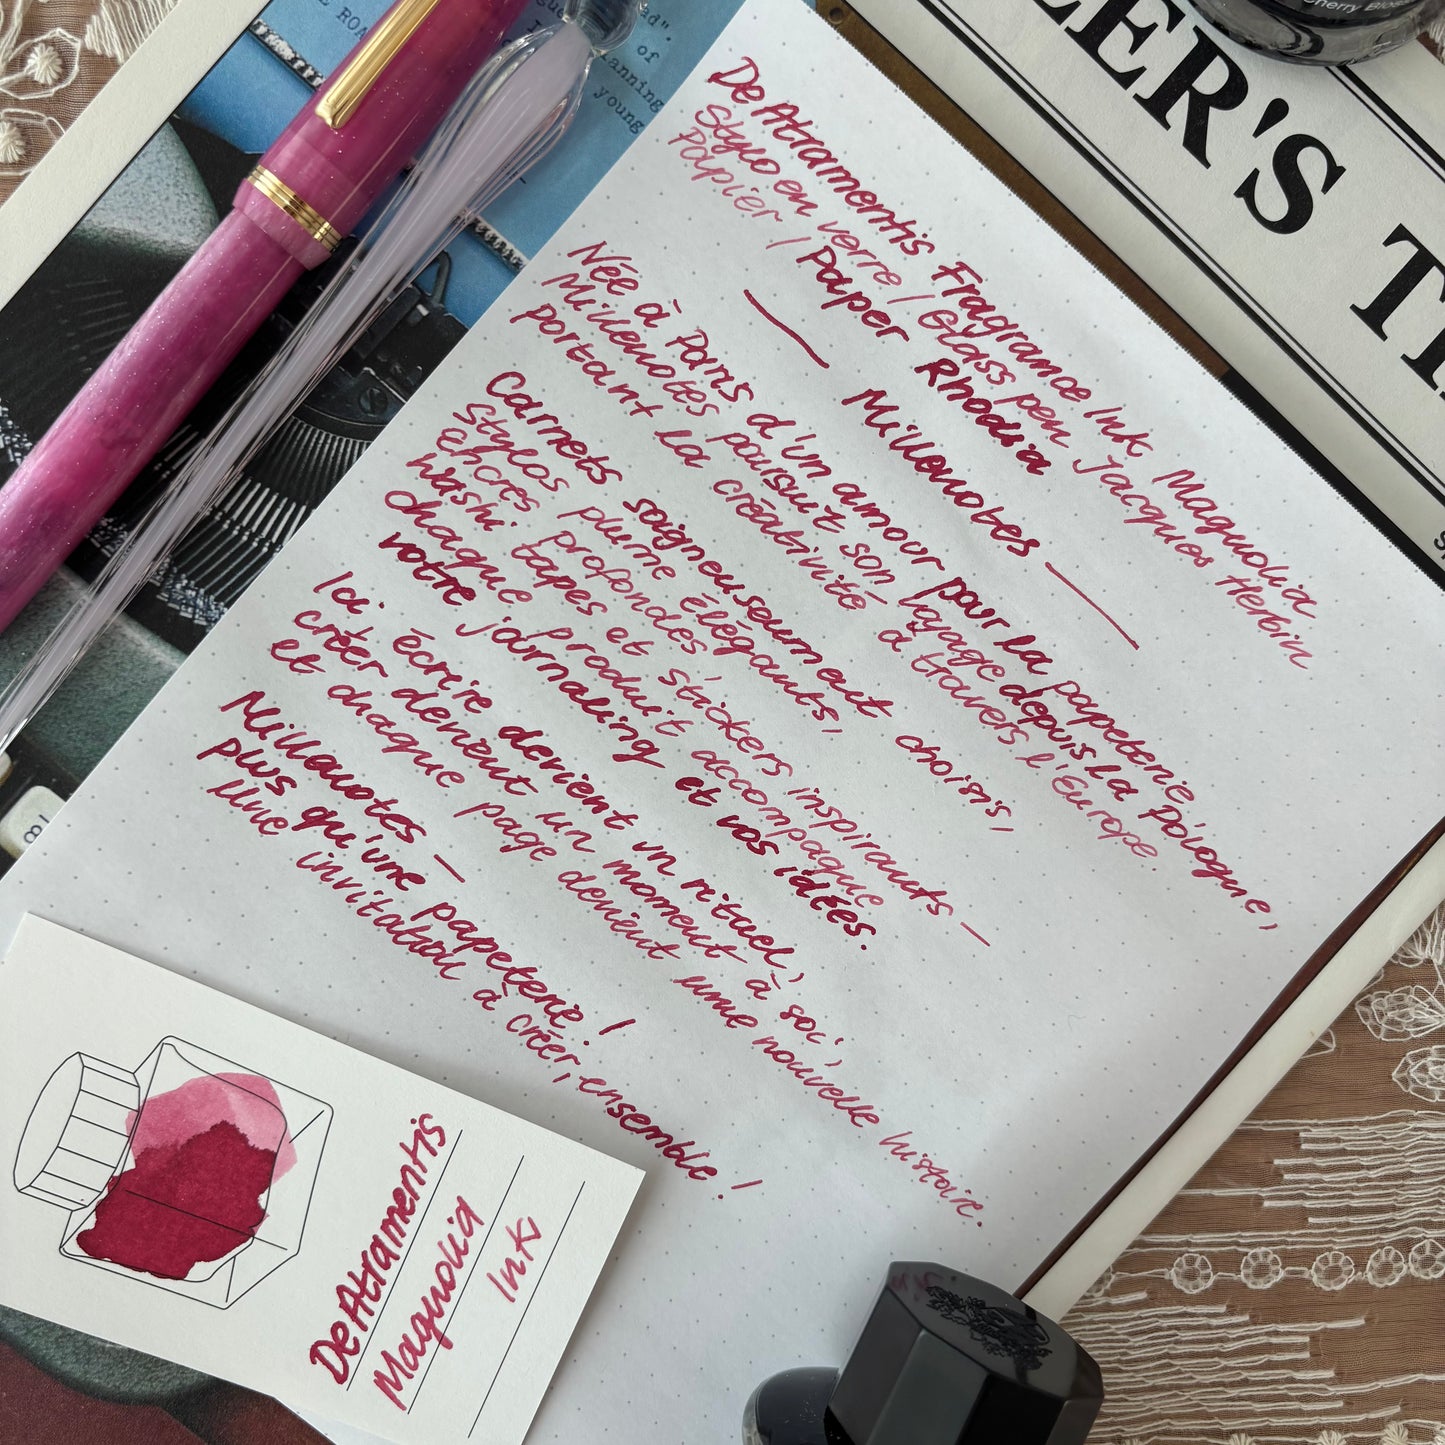 De Atramentis Fragrance Ink Magnolia
Stylo en verre / Glass pen Jacques Herbin
Papier / Paper Rhodia
— Millenotes —
Née à Paris d'un amour pour la papeterie,
Millenotes poursuit son voyage depuis la Pologne,
portant la créativité à travers l'Europe.
Carnets soigneusement choisis,
stylos plume élégants,
encres profondes
washi tapes et stickers inspirants —
chaque produit accompagne
votre journaling et vos idées.
Ici, écrire devient un rituel,
créer devient un moment à soi,
et chaque page devient une nouvelle histoire.
Millenotes —
plus qu'une papeterie!
Une invitation à créer, ensemble!
De Atramentis
Magnolia
Ink
LER'S TI
Cherry Blos
ROA
of
lanning
young
8